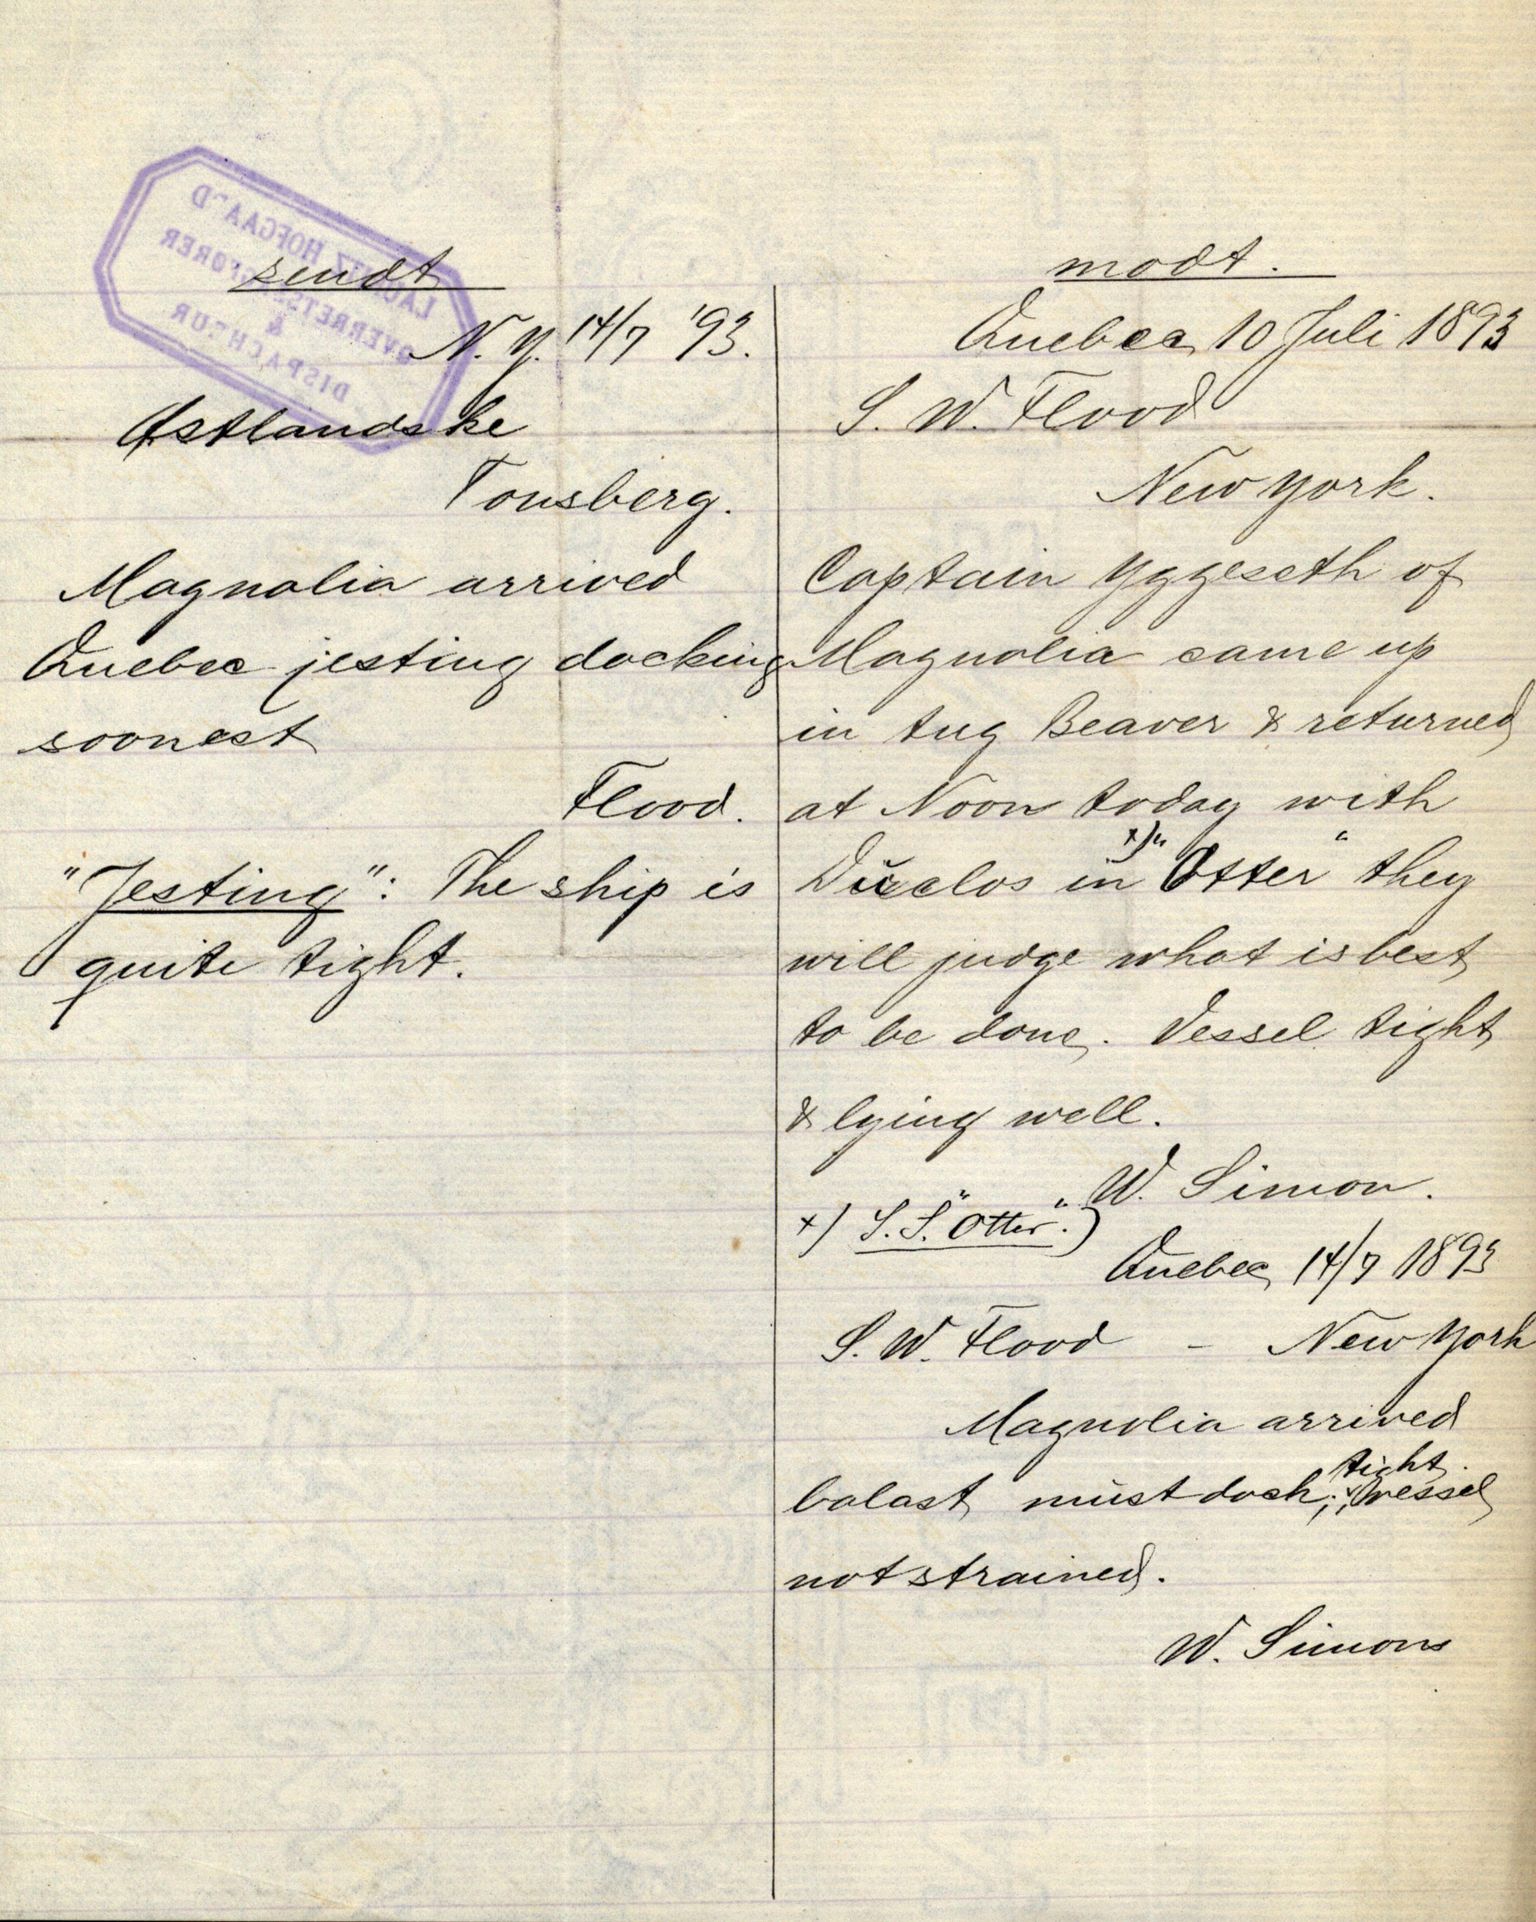 sendt
N. Y. 14/7 '93.
Østlandske
Tonsberg.
Magnolia arrived
Quebec jesting docking
soonest
Flood.
"Jesting": The ship is
quite tight.
modt.
Quebec 10 Juli 1893
S. W. Flood
New York.
Captain Yggeseth of
Magnolia came up
in tug Beaver & returned
at Noon today with
Duclos in x) "Otter" they
will judge what is best
to be done. Vessel tight
& lying well.
W. Simon.
x) S.S. "Otter".)
Quebec 14/7 1893
S. W. Flood - New York
Magnolia arrived
balast must dock; tight. vessel
not strained.
W. Simons
HOFGAARD
OVERRETSSAGFØRER
&
DISPACHEUR